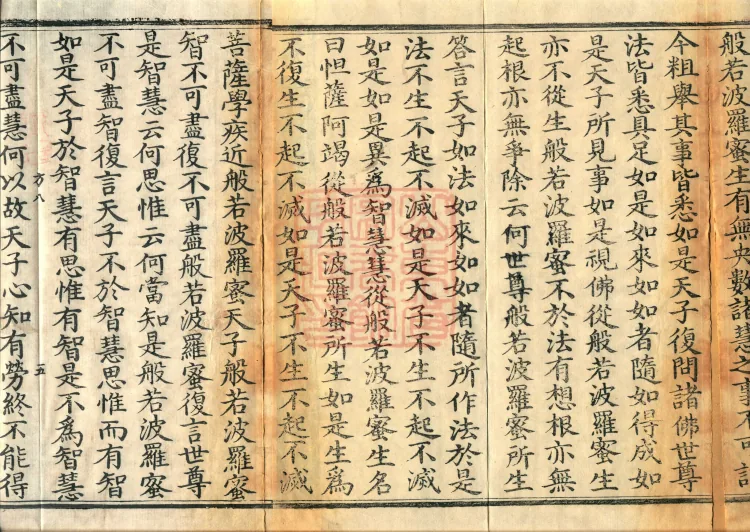 般若波羅蜜生有無央數諸慧之事不可言
今粗舉其事皆悉如是天子復問諸佛世尊
法皆悉具足如是如來如如者隨如得成如
是天子所見事如是視佛從般若波羅蜜生
亦不從生般若波羅蜜不於法有想根亦無
起根亦無爭除云何世尊般若波羅蜜所生
答言天子如法如來如如者隨所作法於是
法不生不起不滅如是天子不生不起不滅
如是如是異為智慧慧從般若波羅蜜生名
曰怛薩阿竭從般若波羅蜜所生如是生為
不復生不起不滅如是天子不生不起不滅
菩薩學疾近般若波羅蜜天子般若波羅蜜
智不可盡復不可盡般若波羅蜜復言世尊
是智慧云何思惟云何當知是般若波羅蜜
不可盡智復言天子不於智慧思惟而有智
如是天子於智慧有思惟有智是不為智慧
方八 五
不可盡慧何以故天子心知有勞終不能得